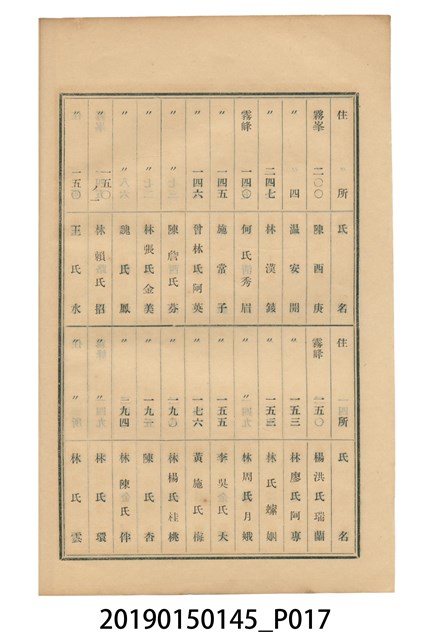 住所 氏名
霧峯 二〇〇 陳酉庚
〃 四 温安開
〃 二四七 林漢錢
霧峰 一四 何氏秀眉
〃 一四五 施常子
〃 一四六 曾林氏阿英
〃 陳詹氏芬
〃 林張氏金美
〃 魏氏鳳
一五〇ノ一 林賴氏招
一五 王氏水
住所 氏名
霧峰 二五〇 楊洪氏瑞蘭
〃 一五三 林廖氏阿專
〃 一五三 林氏嫺
〃 林周氏月娥
〃 一五五 李吳氏天
〃 一七六 黃施氏梅
〃 一九〇 林楊氏桂桃
〃 一九 陳氏杏
〃 二九四 林陳氏伴
〃 林氏環
〃 林氏雲
20190150145_P017